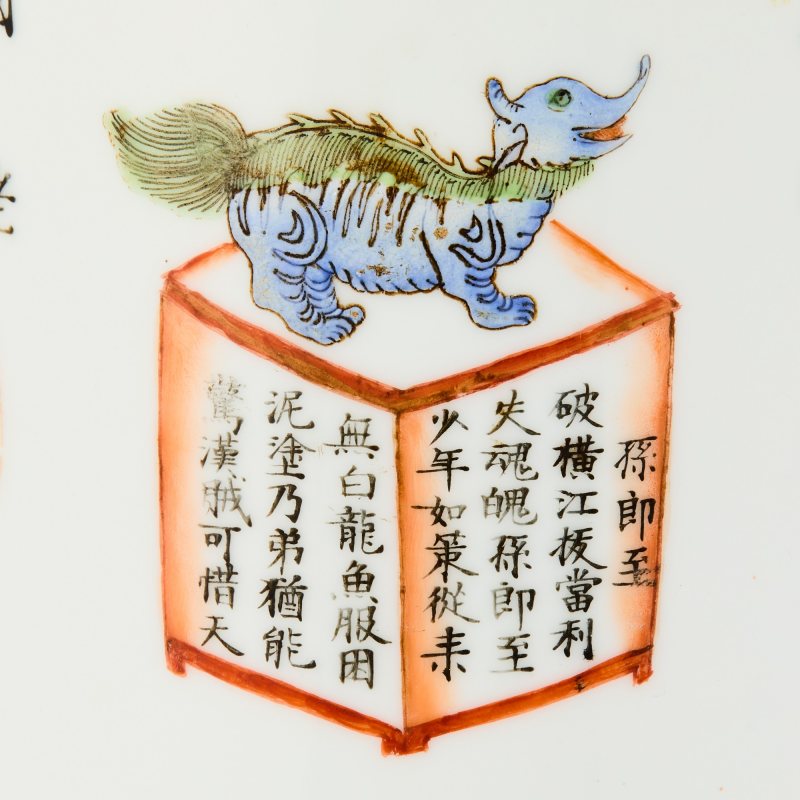 孫郎至
破橫江扳當利
失魂魄孫郎至
少年如策從来
無白龍魚服困
泥塗乃弟猶能
驚漢賊可惜天